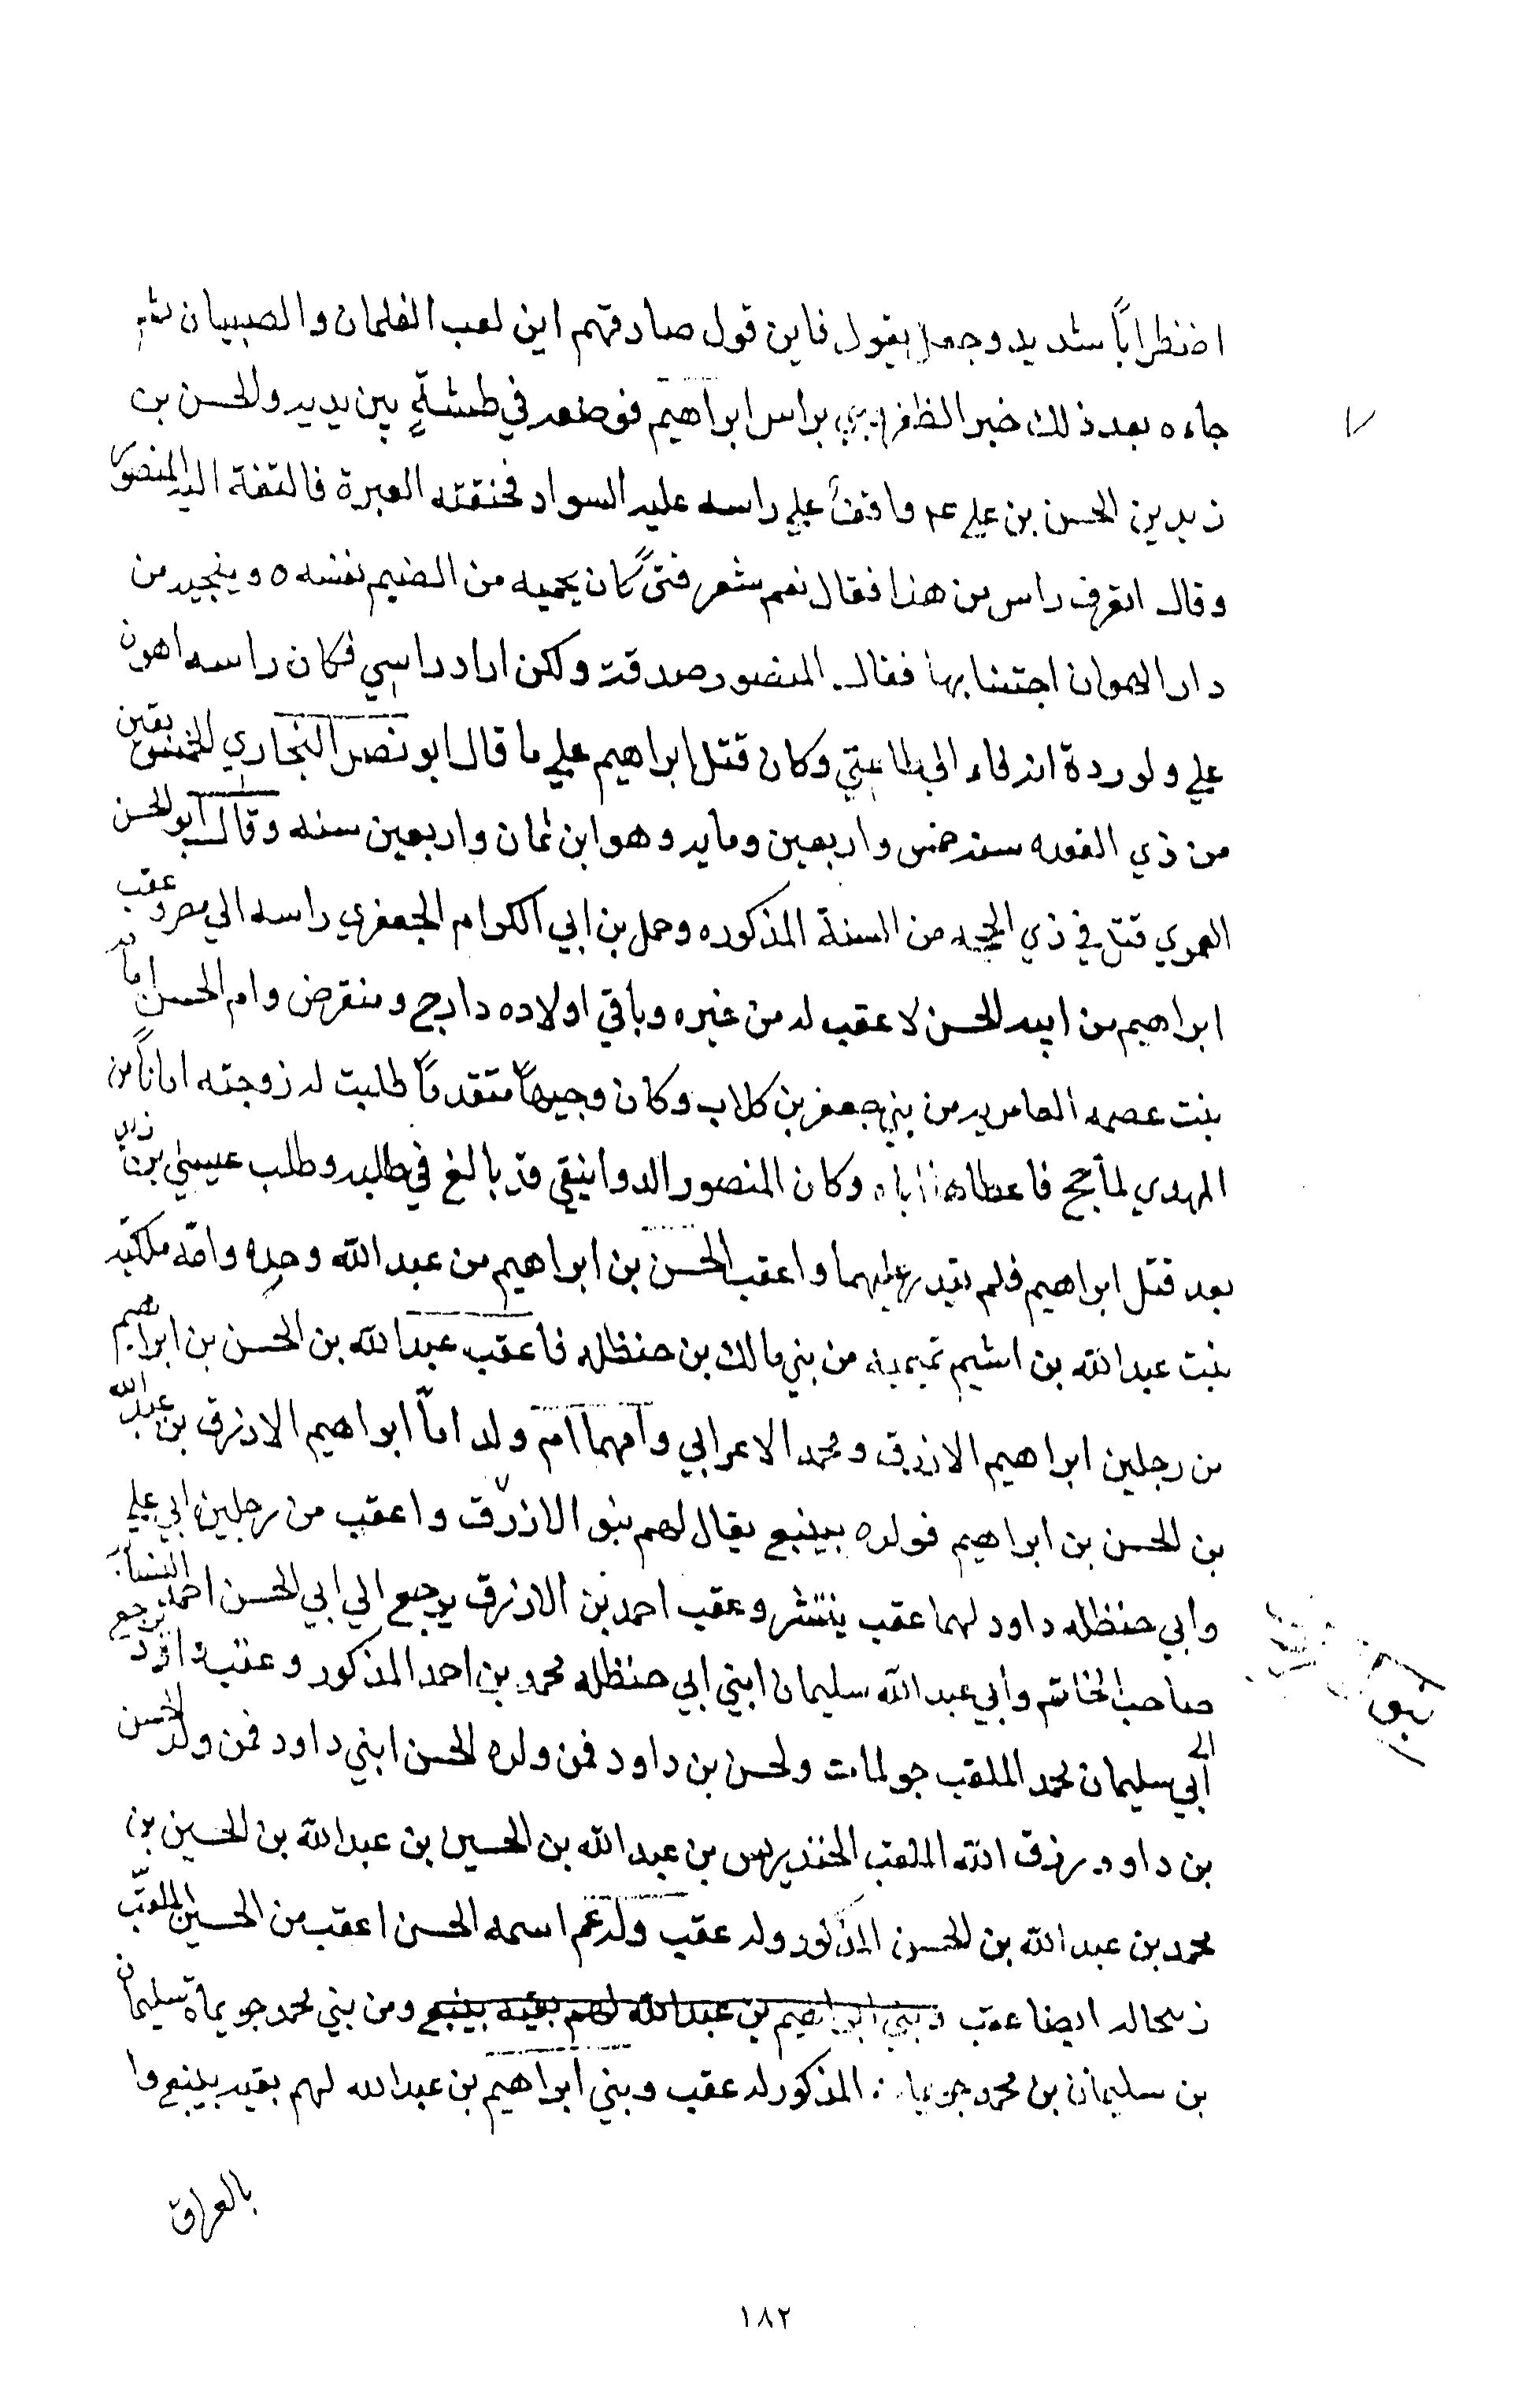 اضطراباً شديد وجعل يقول فاين قول صادقهم اين لعب الغلمان والصبيان ثم
جاءه بعد ذلك خبر الظفر براس ابراهيم فوضعه في طشتٍ بين يديه والحسن بن
زيد بن الحسن بن علي عم واقفاً علي راسه عليه السواد فخنقته العبرة فالتفة اليه المنصور
وقال اتعرف راس من هذا فقال نعم شعر فتىً كان يحميه من الضيم نفسه ٥ وينجيه من
دار الهوان اجتنابها فقال المنصور صدقت ولكن اراد راسي فكان راسه اهون
علي ولوردة انه فاء الي طاعتي وكان قتل ابراهيم علي ما قال ابو نصر البخاري لخمس بقين
من ذي القعده سنه خمس واربعين ومايه وهو ابن ثمان واربعين سنه وقال ابو الحسن
العمري قتل في ذي الحجه من السنة المذكوره وحمل بن ابي الكرام الجعفري راسه الي مصر وعقب
ابراهيم من ابيه الحسن لا عقب له من غيره وباقي اولاده دارج ومنقرض وام الحسن امامه
بنت عصمه العامريه من بني جعفر بن كلاب وكان وجيهاً متقدماً طلبت له زوجته اماناً من
المهدي لما حج فاعطاها اياه وكان المنصور الدوانيقي قد بالغ في طلبه وطلب عيسي بن زيد
بعد قتل ابراهيم فلم يقدر عليهما واعقب الحسن بن ابراهيم من عبد الله وحده وامّه ملكيّه
بنت عبد الله بن اشيم تميميه من بني مالك بن حنظله فاعقب عبد الله بن الحسن بن ابراهيم
من رجلين ابراهيم الازرق ومحمد الاعرابي وامهما ام ولد امّا ابراهيم الازرق بن عبد الله
بن الحسن بن ابراهيم فولده بينبع يقال لهم بنو الازرق واعقب من رجلين ابي علي
وابي حنظله داود لهما عقب ينتشر وعقب احمد بن الازرق يرجع الي ابي الحسن احمد النسابه
صاحب الخاتم وابي عبد الله سليمان ابني ابي حنظله محمد بن احمد المذكور وعقبه داود ترجع
الى ابي سليمان محمد الملقب جولمات ولحسن بن داود فمن ولده الحسن ابني داود فمن ولد الحسن
بن داود رزق الله الملقب الخندريس بن عبد الله بن الحسين بن عبد الله بن الحسين بن
محمد بن عبد الله بن الحسن المذكور وله عقب وله عم اسمه الحسن اعقب من الحسين الملقّب
زنخاله ايضا عقب وبني ابراهيم بن عبد الله لهم بقيه بينبع ومن بني محمد جويماة سليمان
بن سليمان بن محمد المذكور له عقب وبني ابراهيم بن عبد الله لهم بقيه بينبع وا
بالعراق
١٨٢